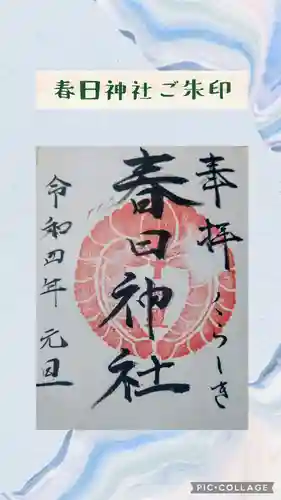 春日神社ご朱印
奉拝
くらしき
春日神社
令和四年 元旦
PIC•COLLAGE